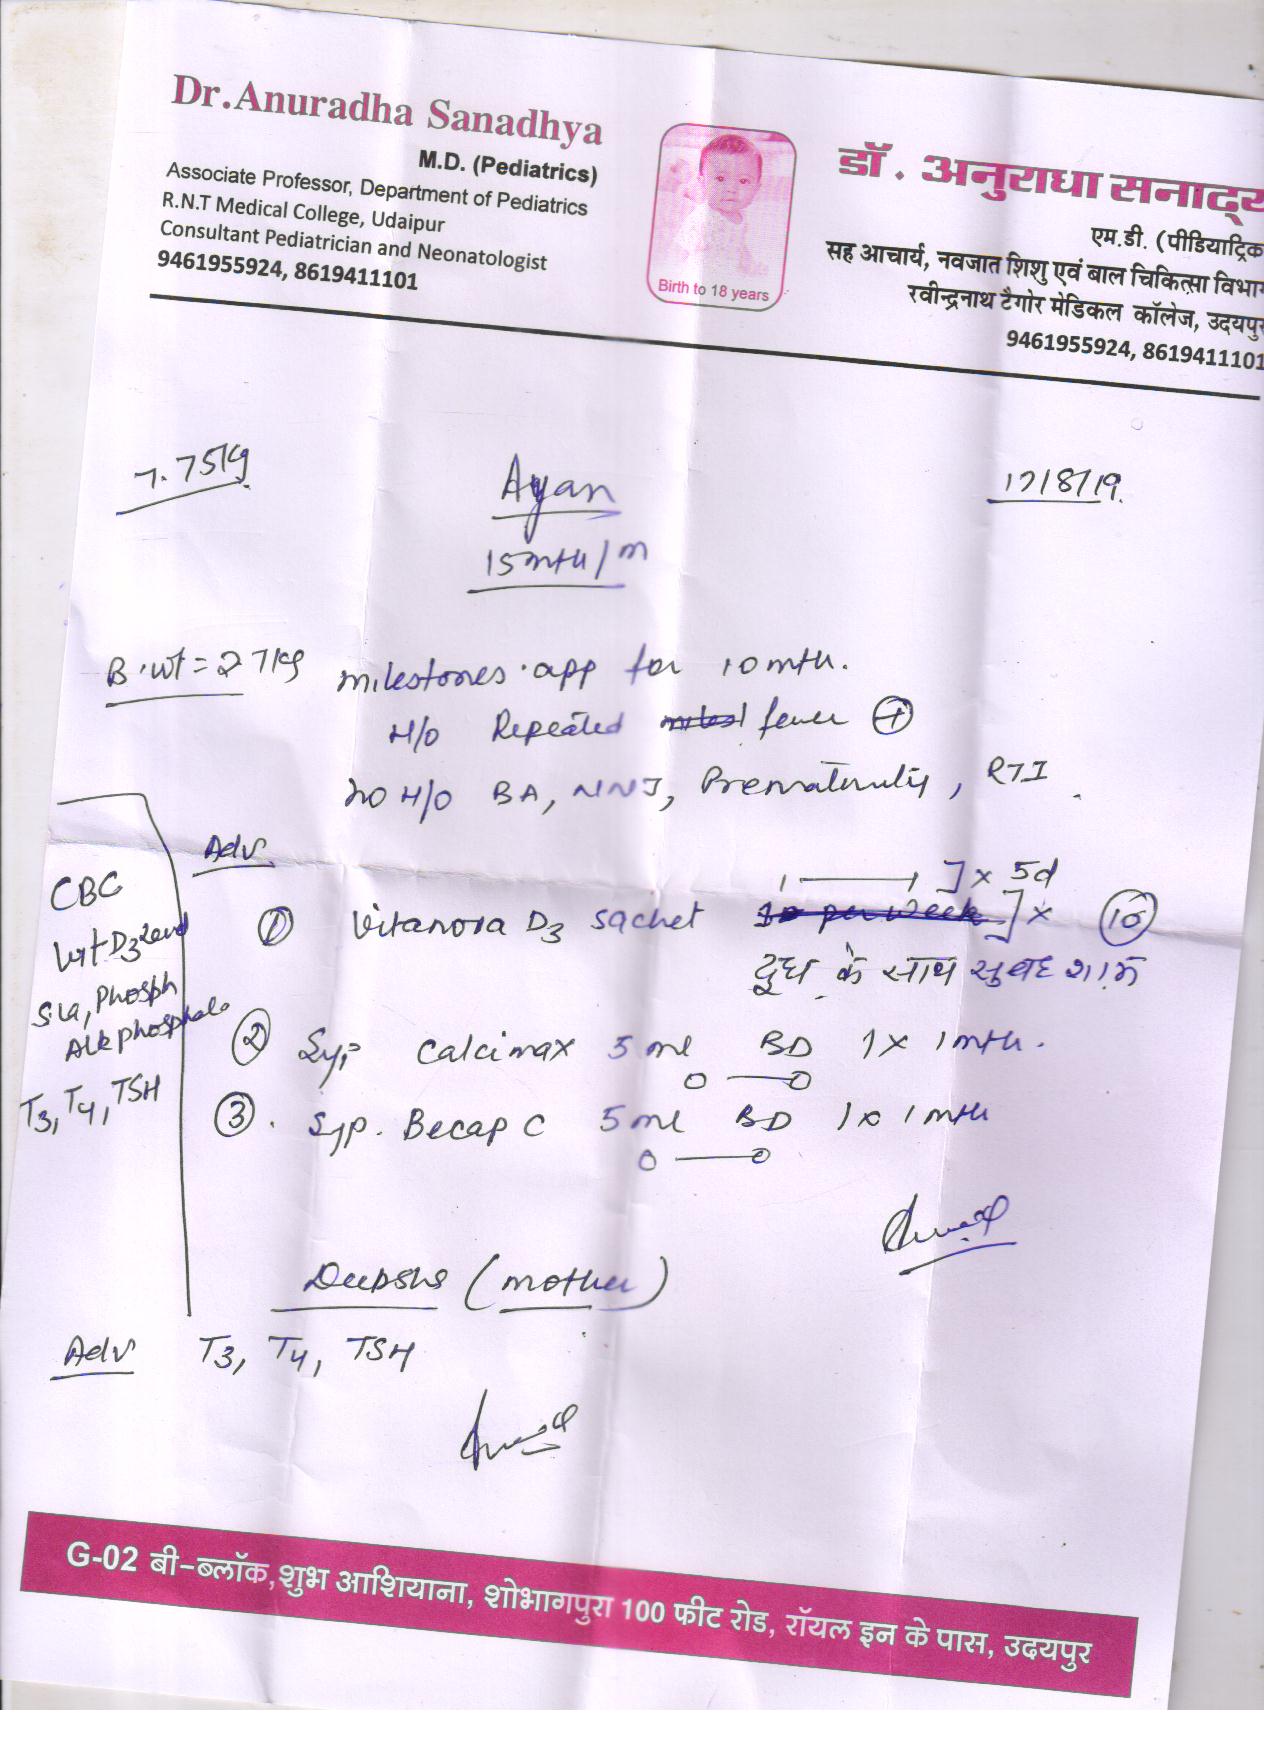 Dr.Anuradha Sanadhya
M.D. (Pediatrics)
Associate Professor, Department of Pediatrics
R.N.T Medical College, Udaipur
Consultant Pediatrician and Neonatologist
9461955924, 8619411101
Birth to 18 years
डॉ. अनुराधा सनाढ्य
एम.डी. (पीडियाट्रिक
सह आचार्य, नवजात शिशु एवं बाल चिकित्सा विभाग
रवीन्द्रनाथ टैगोर मेडिकल कॉलेज, उदयपुर
9461955924, 8619411101
7.75kg
Ayan
17/8/19.
15mth/m
B.wt = 2.7kg
milestones app for 10 mth.
H/O Repeated fever +
no H/O BA, NNJ, Prematurity, RTI
Adv.
1 ] x 5d
① Vitanova D3 sachet 10 per week ] x 10
दूध के साथ सुबह शाम
② Syp Calcimax 5 ml BD 1 x 1 mth.
③. Syp. Becap C 5 ml BD 1 x 1 mth
CBC
Vit D3 level
S.Ca, Phosph
Alk phosphate
T3, T4, TSH
(mother)
Adv T3, T4, TSH
G-02 बी-ब्लॉक,शुभ आशियाना, शोभागपुरा 100 फीट रोड, रॉयल इन के पास, उदयपुर